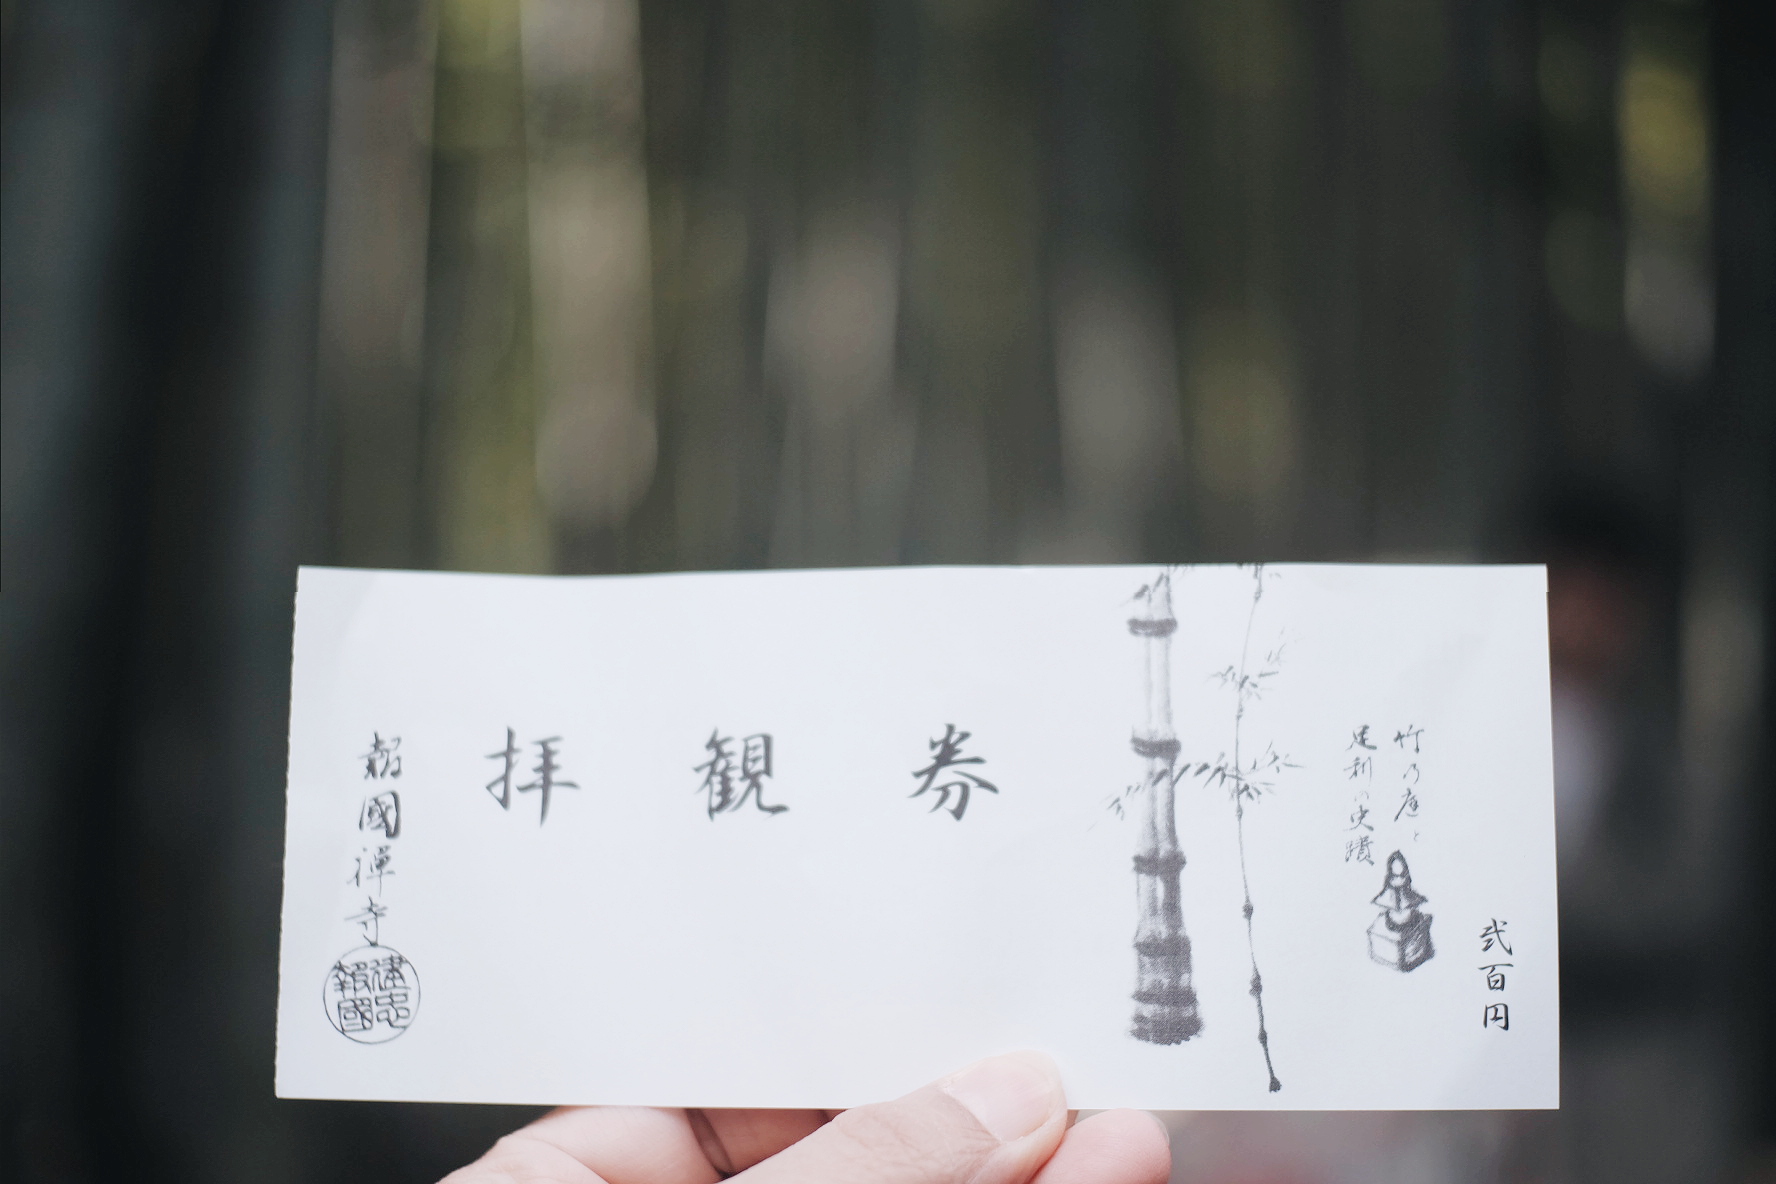 弐百円
竹乃庭と
足利の史蹟
拝観券
報國禅寺
建忠
報國